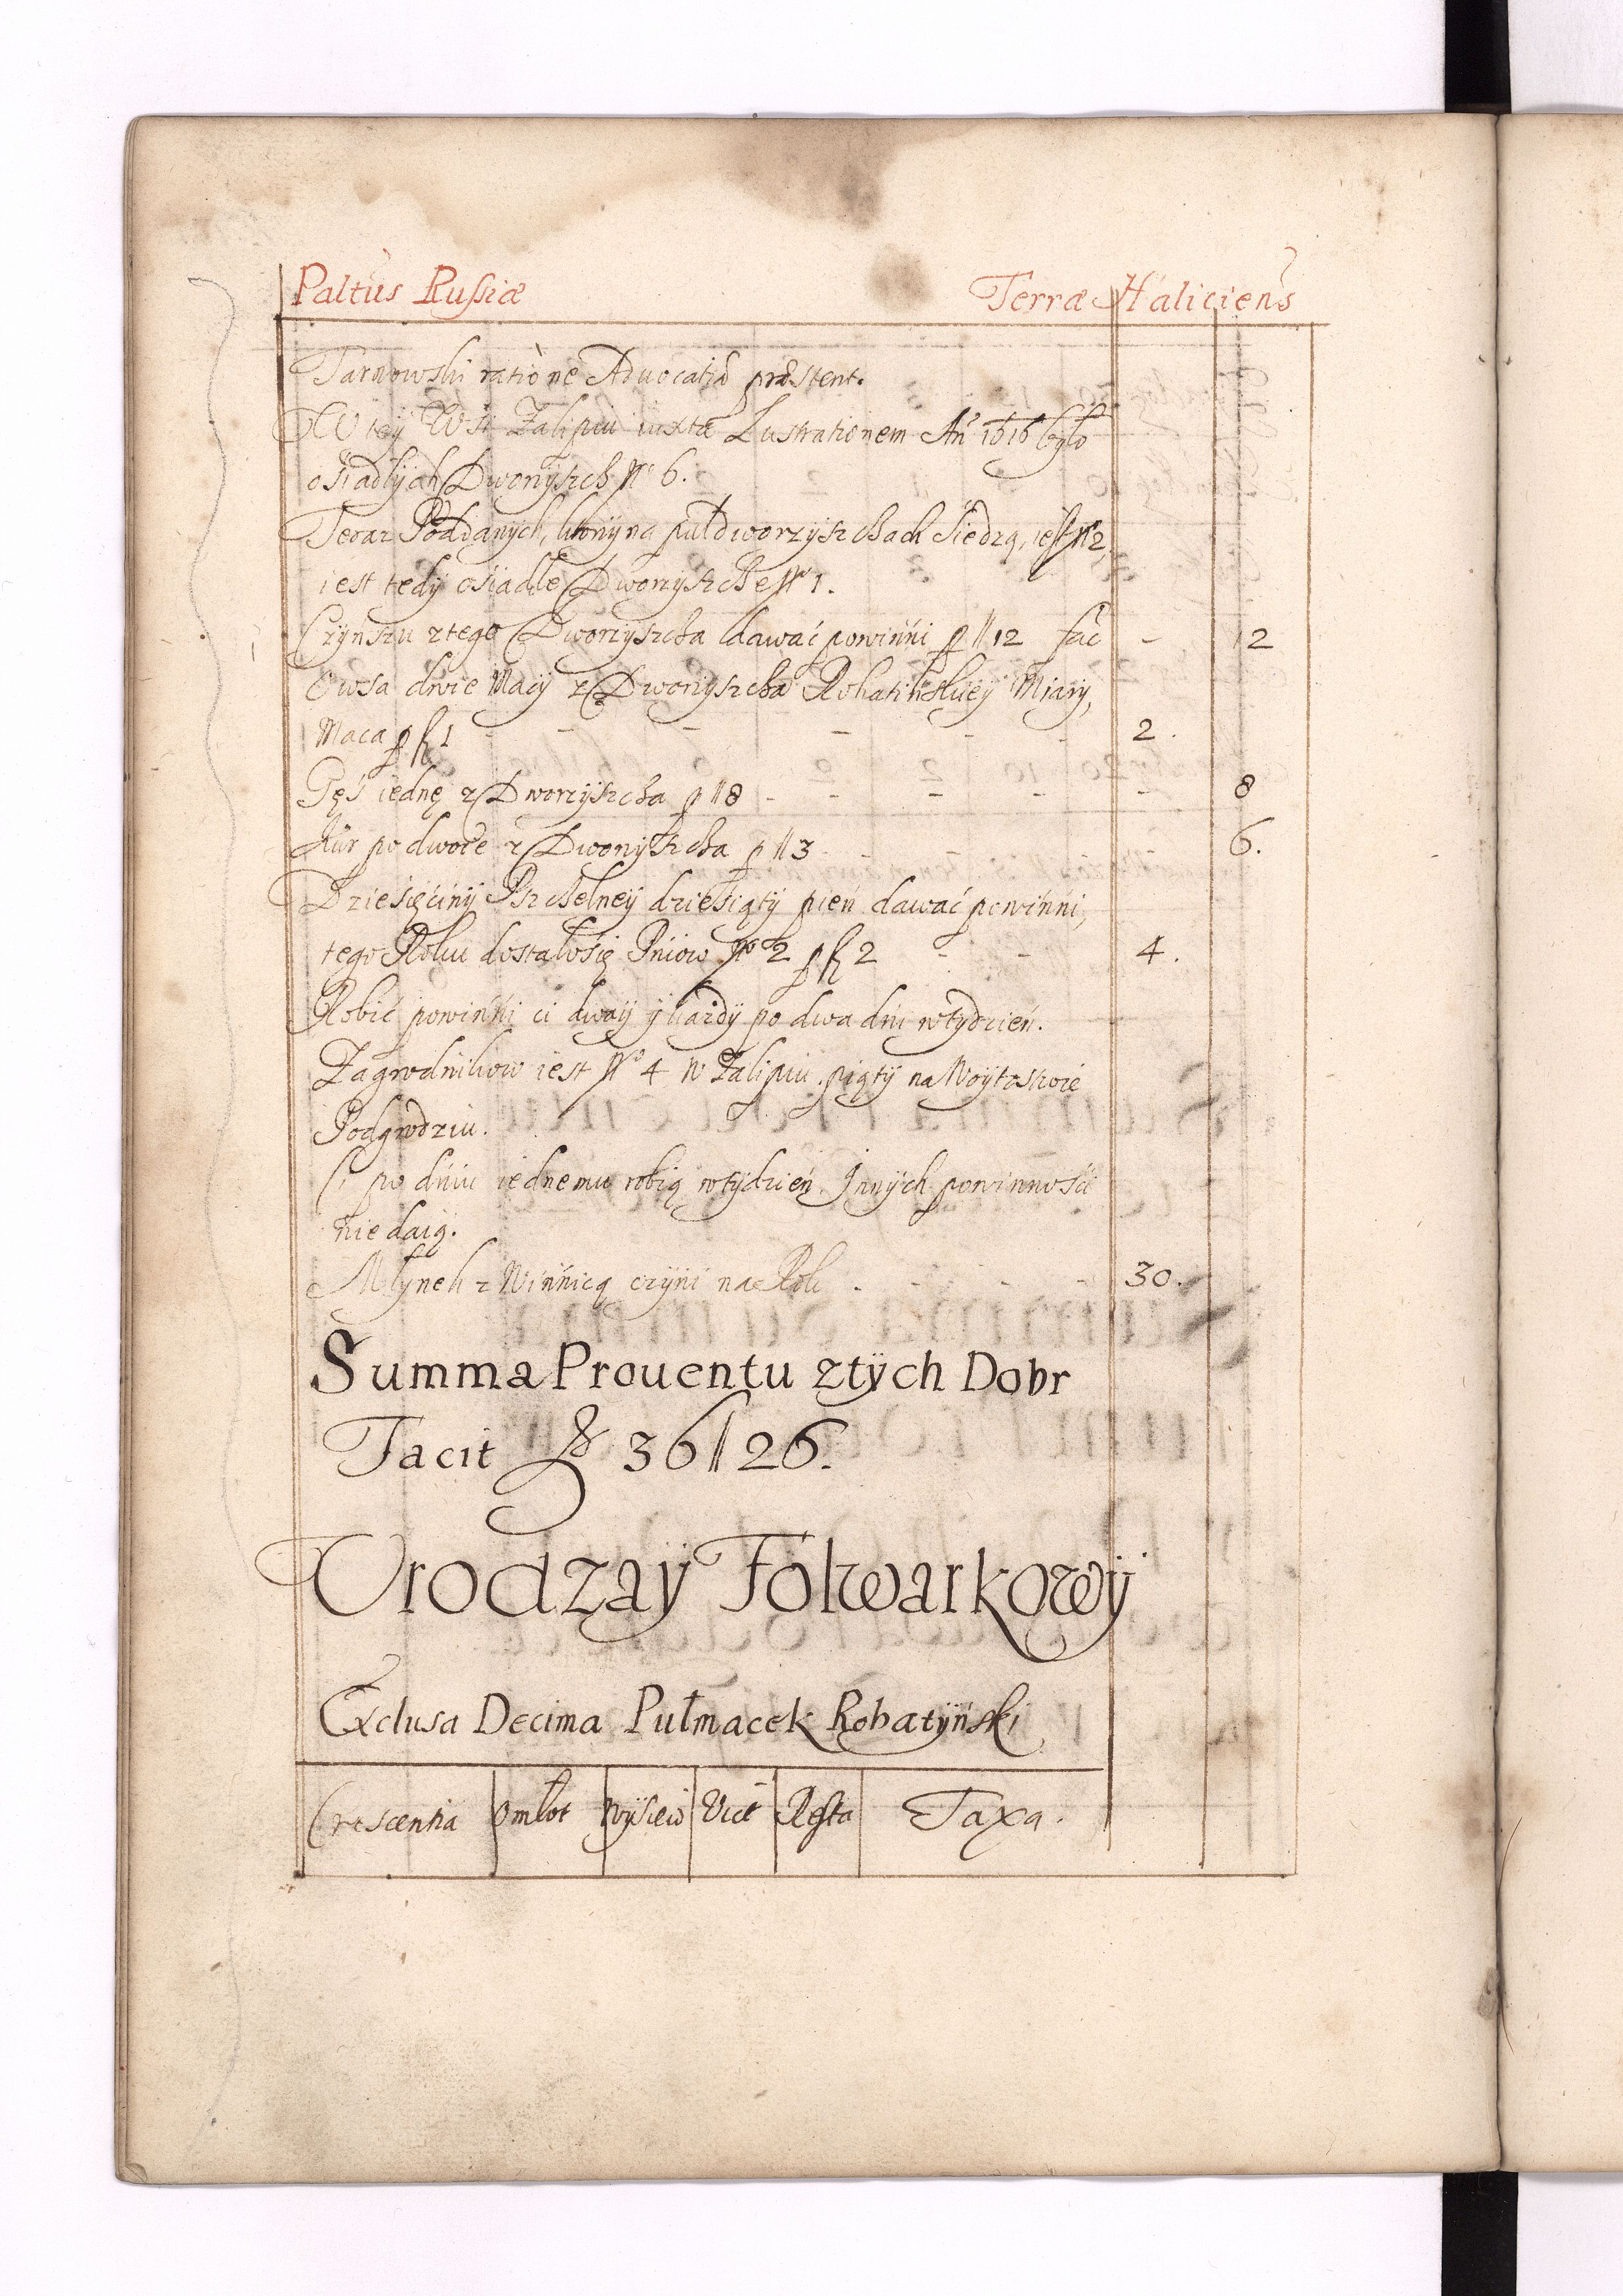 Paltus Russiæ Terræ Haliciens
Tarnowski ratione Aduocatiæ præstent.
W teÿ Wsi Zalipiu iuxta Lustrationem An̄ 1616 było
osiadłÿch Dworÿszch N° 6.
Teraz Poddanych, ktorÿ na pułdworzÿszchach siedzą, iest N° 2,
iest tedÿ osiadłe Dworzÿszche N° 1.
Czÿnszu z tego Dworzÿszcha dawać powinni p // 12 fac - 12
Owsa dwie Macÿ z Dworzÿszcha Rohatinskieÿ Miarÿ,
Maca p fl 1 - - - - - - 2.
Gęś iednę z Dworzÿszcha p // 8 - - - - - 8
Kur po dwoie z Dworzÿszcha p // 3 - - - 6.
Dziesięcinÿ Pszchelneÿ dziesiątÿ pień dawać powinni,
tego Roku dostałosię Pniow N° 2 p fl 2 - - 4.
Robić powinni ci dwaÿ ÿ każdÿ po dwa dni w tÿdzień.
Zagrodnikow iest N° 4 w Zalipiu. piątÿ na Woÿtostwie
Podgrodziu.
Ci po dniu iednemu robią w tÿdzień. Innÿch powinności
nie daią.
Młÿnek z Winnicą czÿni na Rok - - - - 30.
Summa Prouentu z tÿch Dobr
Facit fl 36 // 26.
Vrodzaÿ Folwarkowÿ
Exclusa Decima Pułmacek Rohatÿński
Crescentia Omłot Wÿsiew Vict Resta Taxa.